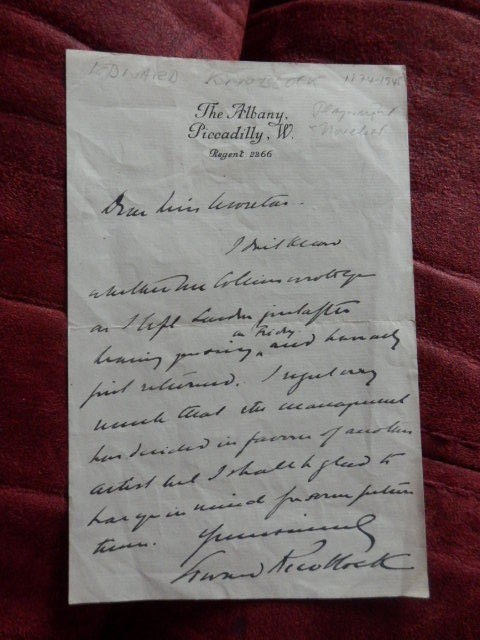 EDWARD KNOBLOCK 1874-1945
Playwright
& Novelist
The Albany,
Piccadilly, W.
Regent 2866
Dear Miss
I don't know
whether Mr Collins wrote you
as I left London just after
on Friday
hearing you sing, and have only
just returned. I regret very
much that the management
has decided in favour of another
artist but I shall be glad to
have you in mind for some future
time. Yours sincerely
Edward Knoblock